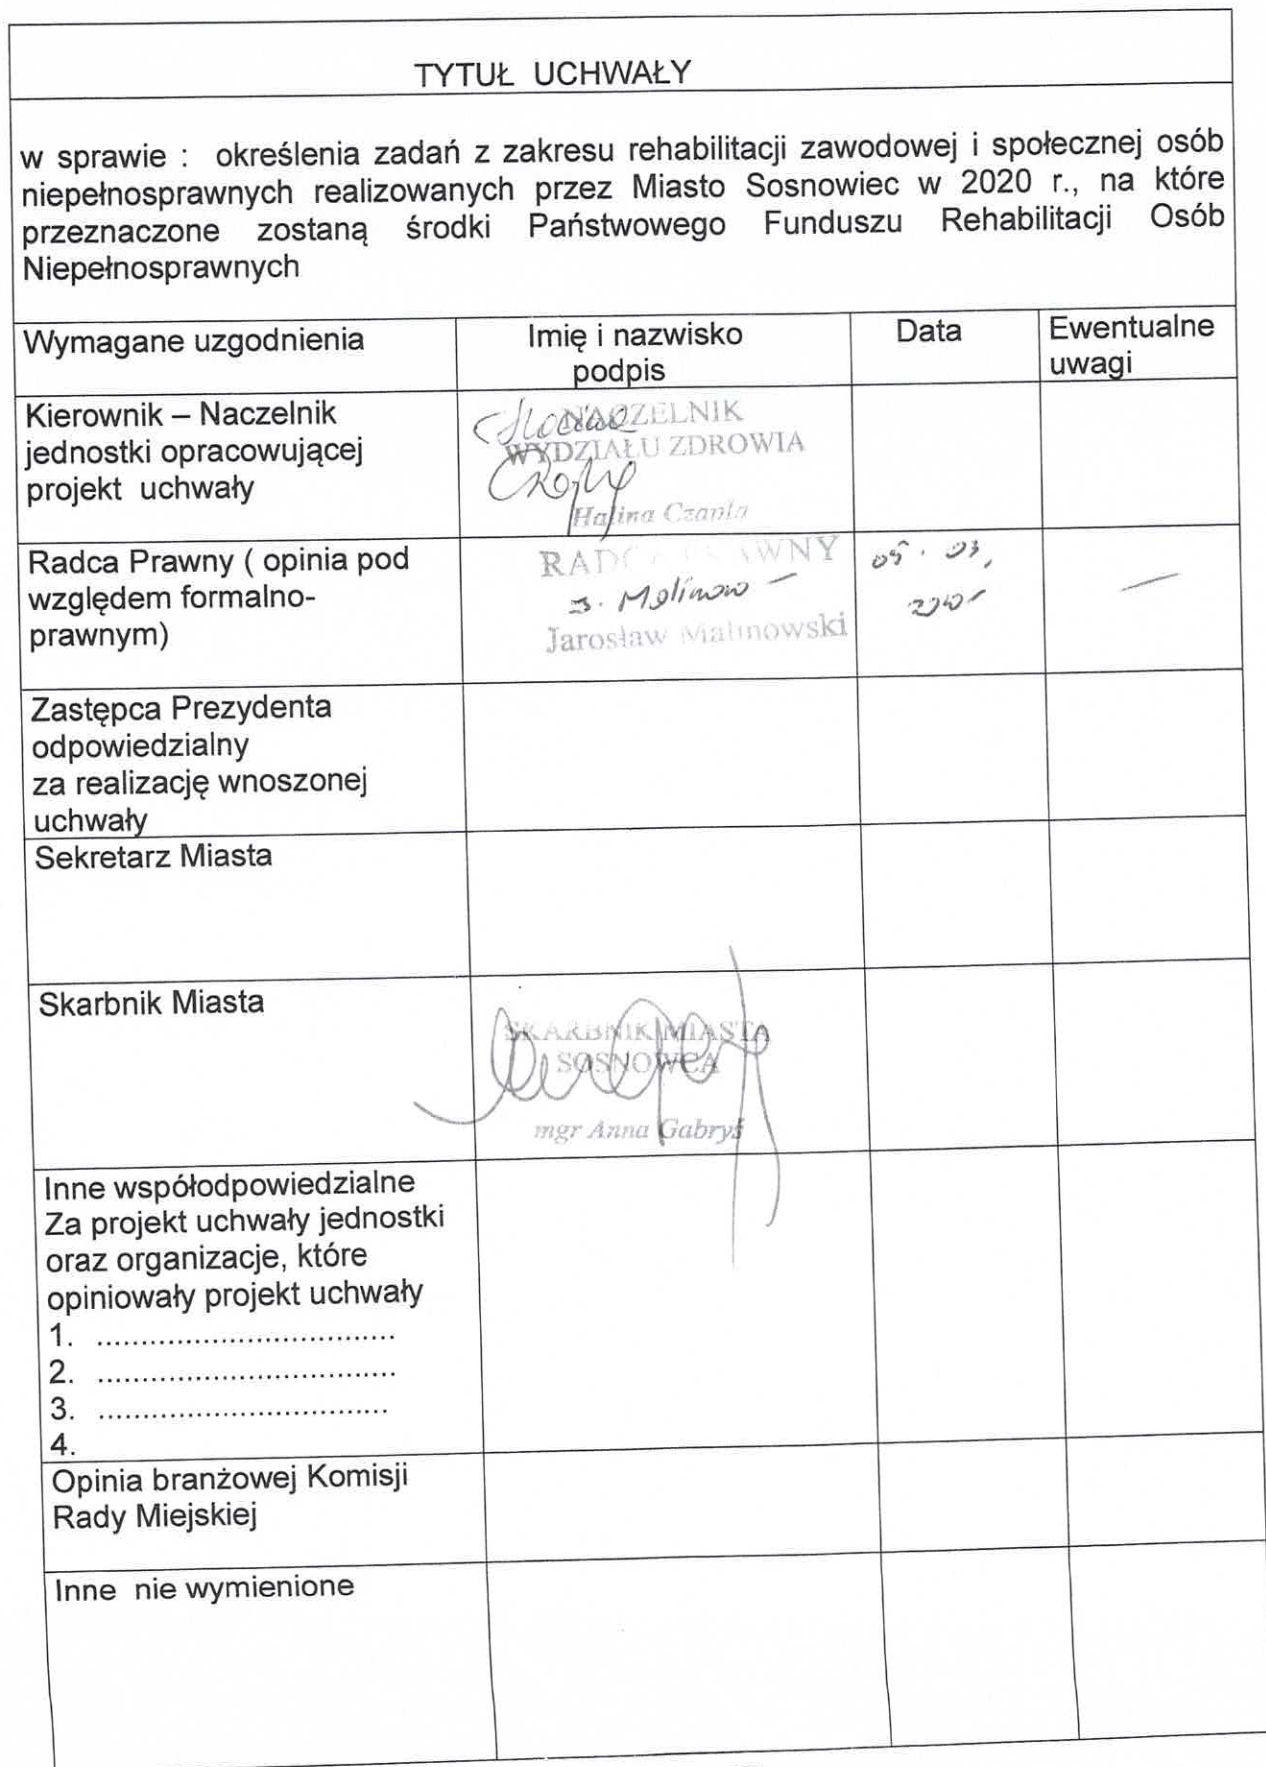 TYTUŁ UCHWAŁY
w sprawie : określenia zadań z zakresu rehabilitacji zawodowej i społecznej osób
niepełnosprawnych realizowanych przez Miasto Sosnowiec w 2020 r., na które
przeznaczone zostaną środki Państwowego Funduszu Rehabilitacji Osób
Niepełnosprawnych
Wymagane uzgodnienia
Imię i nazwisko
podpis
Data
Ewentualne
uwagi
Kierownik – Naczelnik
jednostki opracowującej
projekt uchwały
NACZELNIK
WYDZIAŁU ZDROWIA
Halina Czapla
Radca Prawny ( opinia pod
względem formalno-
prawnym)
RADCA PRAWNY
Jarosław Malinowski
05. 03,
Zastępca Prezydenta
odpowiedzialny
za realizację wnoszonej
uchwały
Sekretarz Miasta
Skarbnik Miasta
SKARBNIK MIASTA
SOSNOWCA
mgr Anna Gabryś
Inne współodpowiedzialne
Za projekt uchwały jednostki
oraz organizacje, które
opiniowały projekt uchwały
1. ..................................
2. ..................................
3. .................................
4.
Opinia branżowej Komisji
Rady Miejskiej
Inne nie wymienione